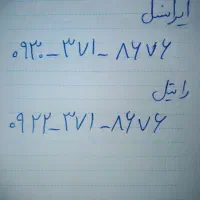 ایرانسل
۰۹۳۰-۳۷۱-۸۶۷۶
رایتل
۰۹۲۲-۳۷۱-۸۶۷۶